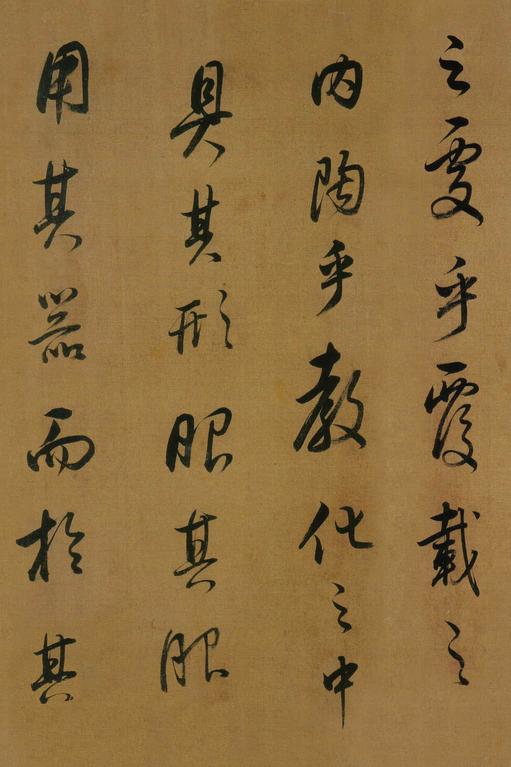 之處乎覆載之
內陶乎教化之中
具其形服其服
用其器而於其